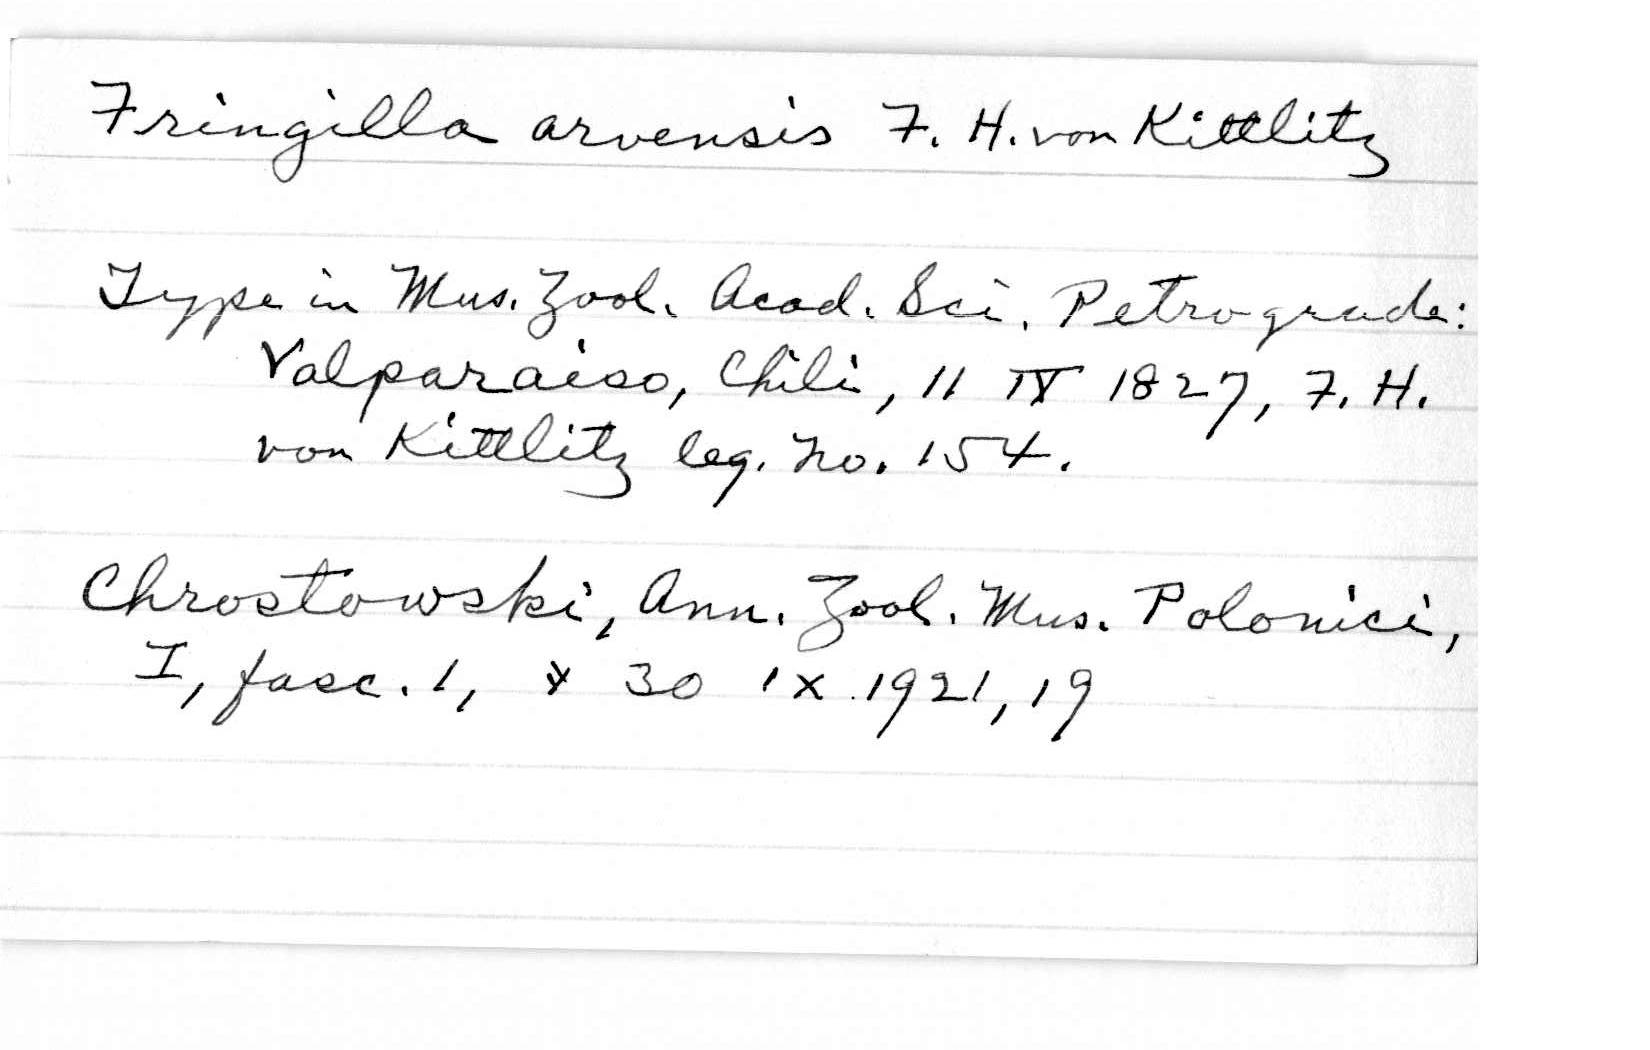 Fringilla arvensis F. H. von Kittlitz
Type in Mus. Zool. Acad. Sci. Petrograde:
Valparaiso, Chili, 11 IV 1827, F. H.
von Kittlitz leg. no. 154.
Chrostowski, Ann. Zool. Mus. Polonici,
I, fasc. 1, 30 IX 1921, 19